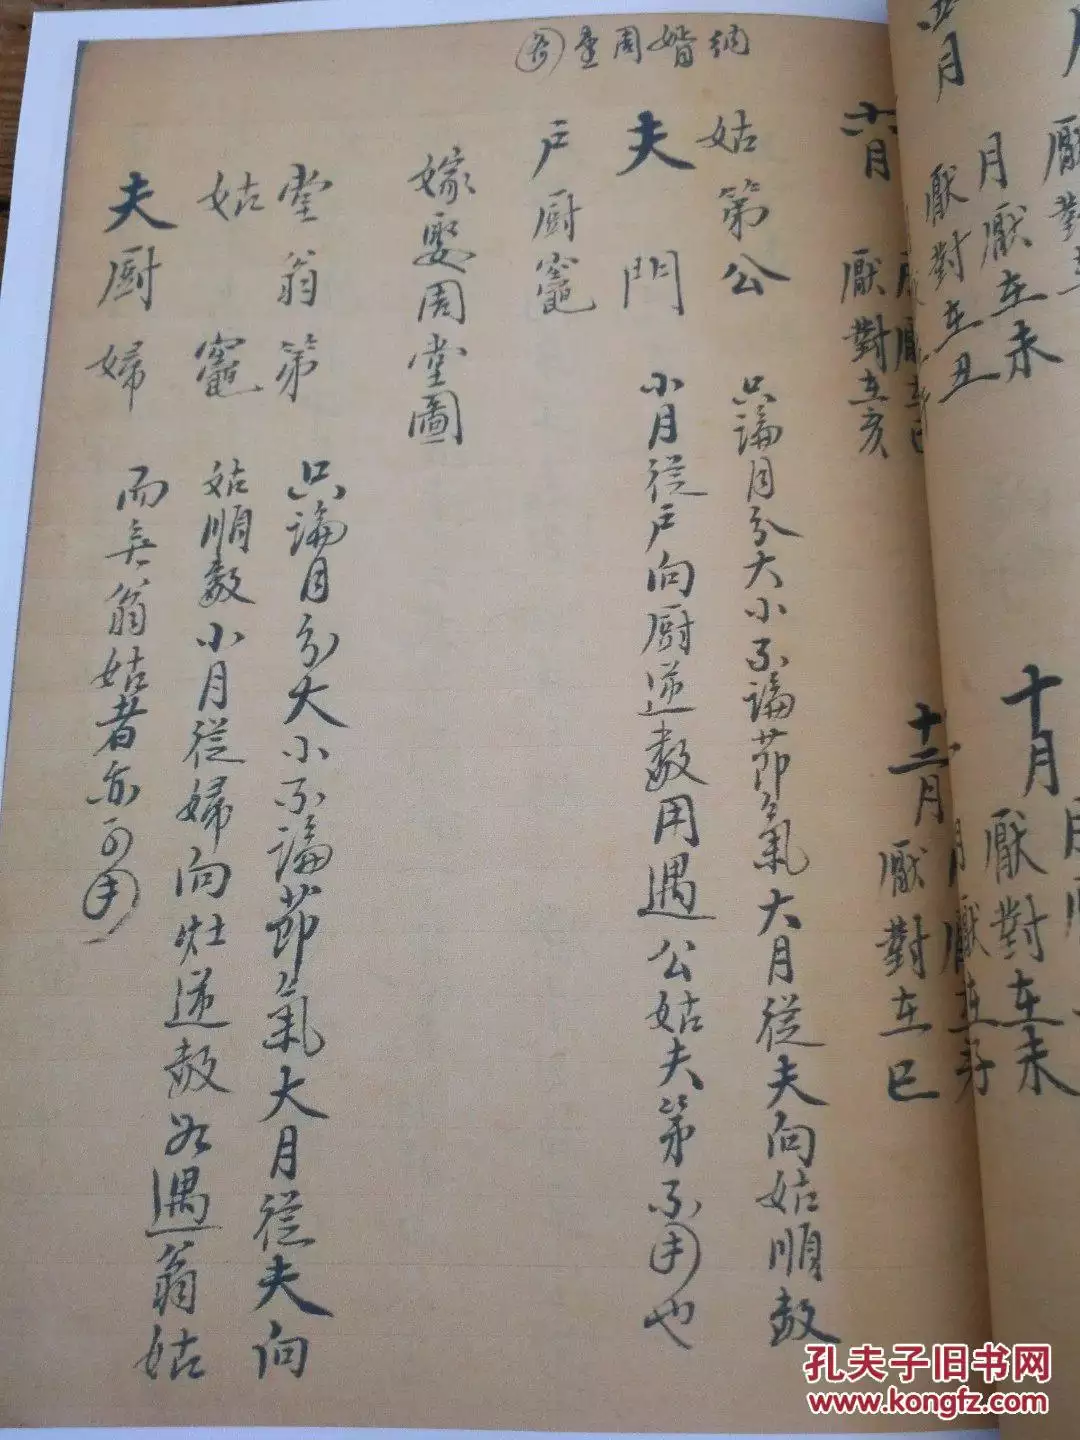 十月
厭對在未
五月
月厭在未
厭對在丑
十二月
月厭在子
厭對在巳
六月
月厭在巳
厭對在亥
納婿周堂
姑第公
夫門
戶厨竈
只論月分大小不論節氣大月從夫向姑順數
小月從戶向厨逆數用遇公姑夫第不用也
嫁娶周堂圖
堂翁第
姑竈
夫厨婦
只論月分大小不論節氣大月從夫向
姑順數小月從婦向灶逆數若遇翁姑
而無翁姑者亦可用
孔夫子旧书网
www.kongfz.com